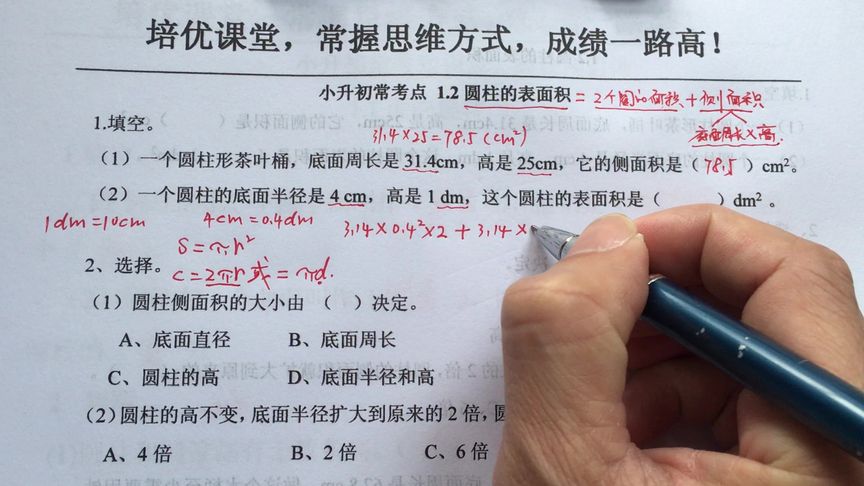 培优课堂，常握思维方式，成绩一路高！
小升初常考点 1.2 圆柱的表面积 = 2个圆的面积 + 侧面积
底面周长×高
1.填空。
31.4×25=78.5(cm²)
（1）一个圆柱形茶叶桶，底面周长是 31.4cm，高是 25cm，它的侧面积是（78.5）cm²。
（2）一个圆柱的底面半径是 4 cm，高是 1 dm，这个圆柱的表面积是（ ）dm² 。
1dm=10cm 4cm=0.4dm 3.14×0.4²×2+3.14×
S=πr²
2、选择。
C=2πr或=πd.
（1）圆柱侧面积的大小由 （ ）决定。
A、底面直径 B、底面周长
C、圆柱的高 D、底面半径和高
（2）圆柱的高不变，底面半径扩大到原来的 2 倍，圆
A、4 倍 B、2 倍 C、6 倍